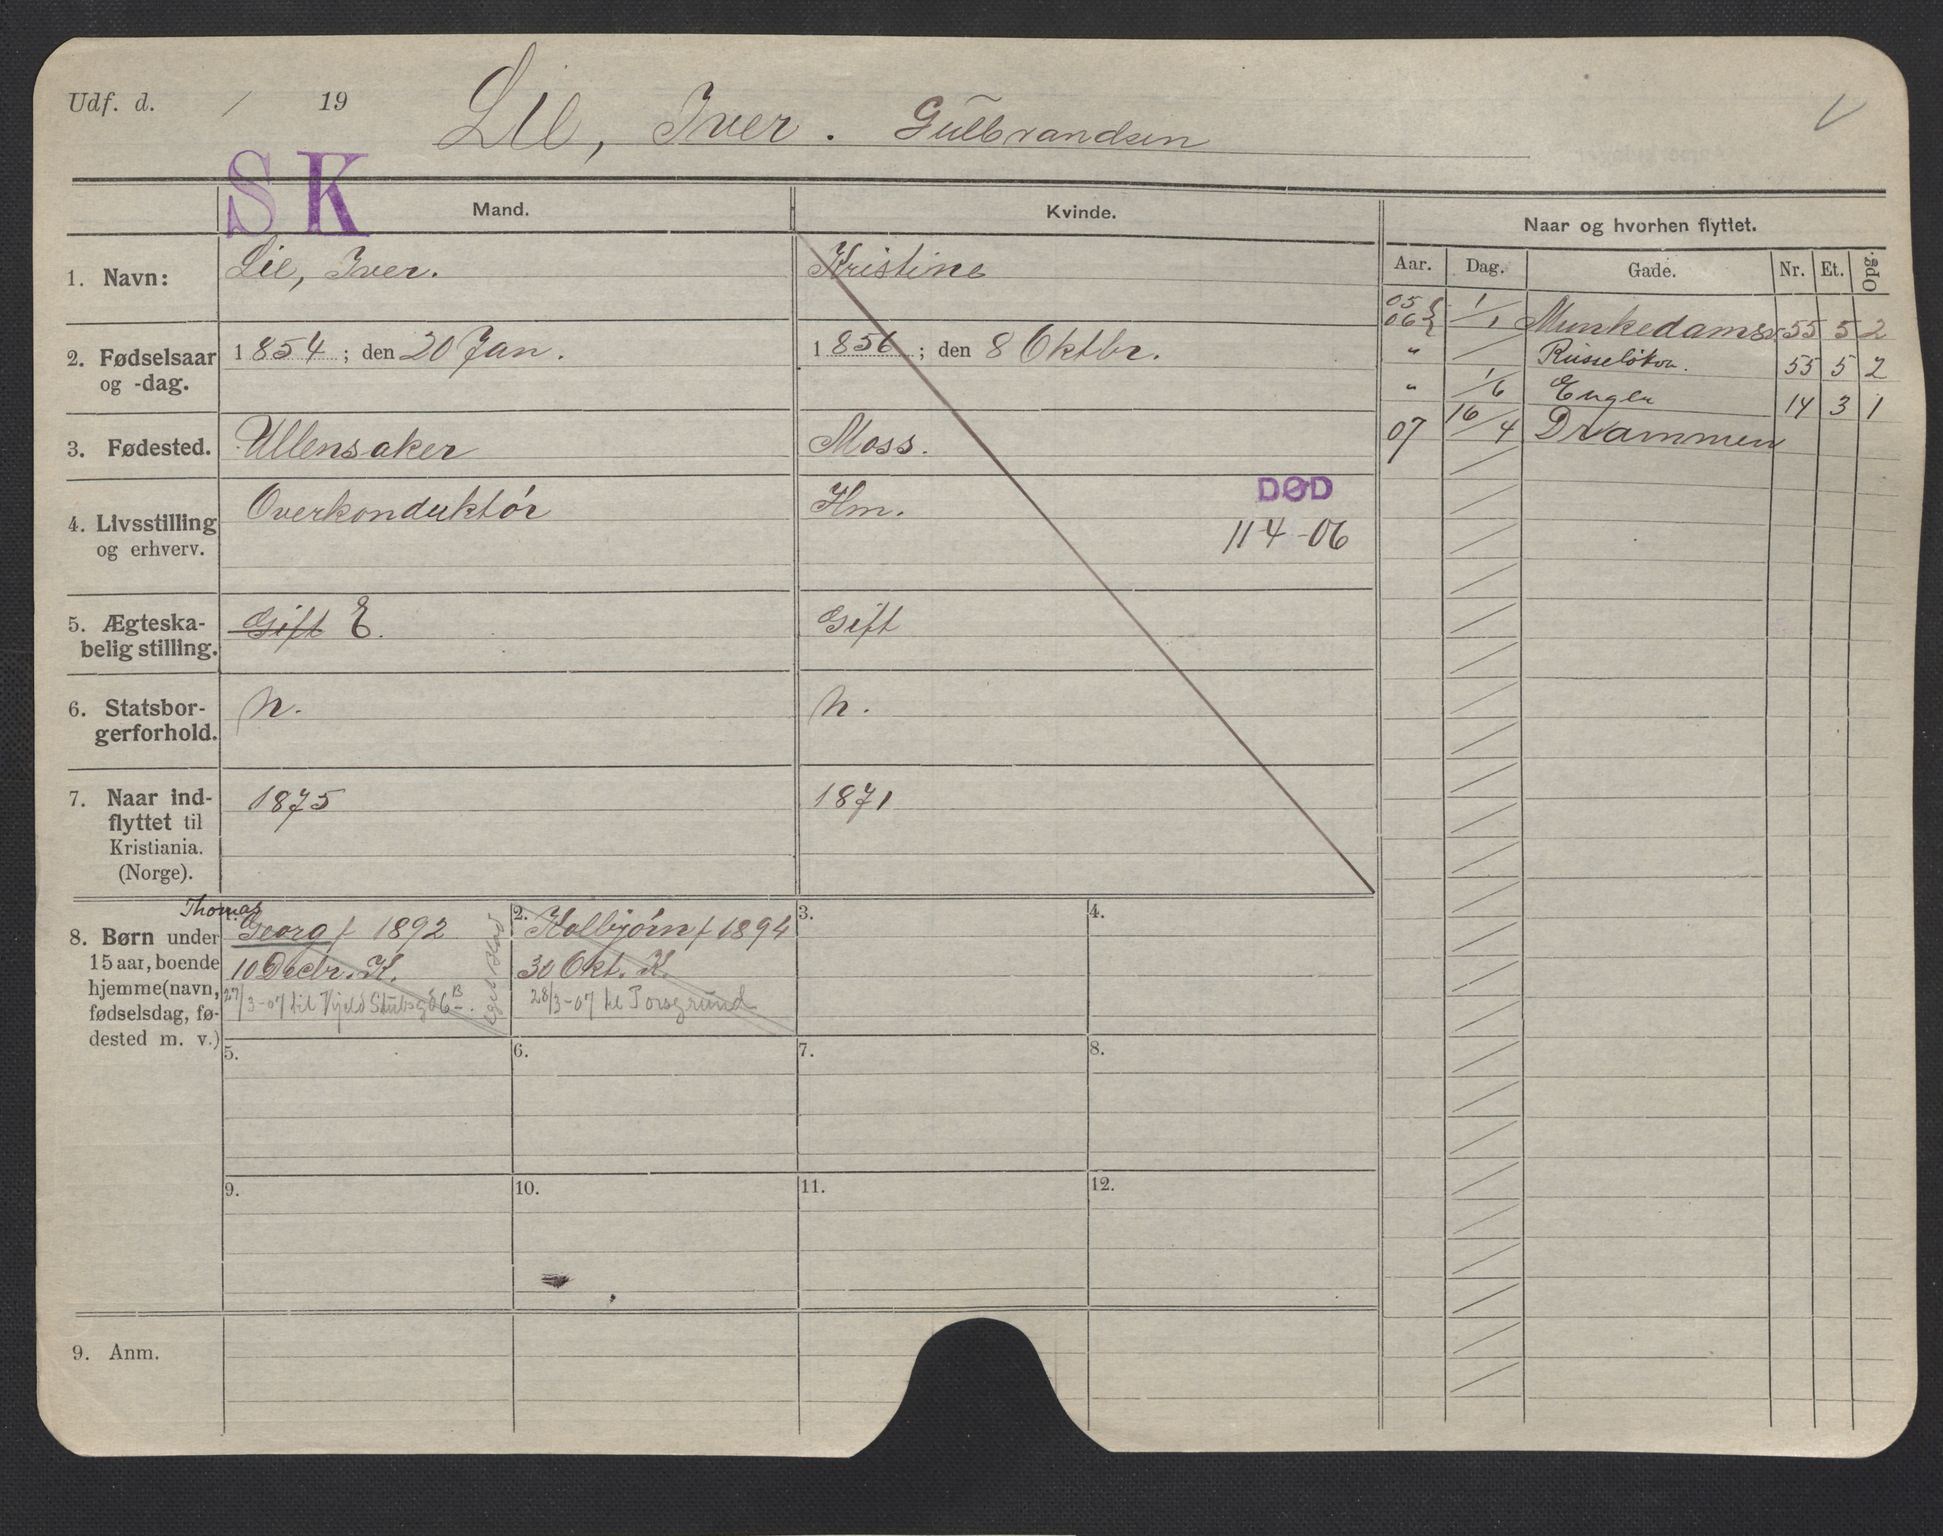 Udf. d. / 19 Lie, Iver. Gulbrandsen
SK
Mand. Kvinde. Naar og hvorhen flyttet.
Aar. Dag. Gade. Nr. Et. Opg.
1. Navn: Lie, Iver. Kristine
2. Fødselsaar og -dag. 1854; den 20 Jan. 1856; den 8 Oktbr.
3. Fødested. Ullensaker Moss.
4. Livsstilling og erhverv. Overkonduktør Hm.
DØD
11 4 -06
5. Ægteska-
belig stilling. Gift E. Gift
6. Statsbor-
gerforhold. n. n.
7. Naar ind-
flyttet til
Kristiania.
(Norge). 1875 1871
05 06 1/1 Munkedamsv. 55 5 2
" / Ruseløkv. 55 5 2
" 1/6 Enger 14 3 1
07 16/4 Drammen
8. Børn under
15 aar, boende
hjemme (navn,
fødselsdag, fø-
dested m. v.)
Thomas
1. Georg f 1892
10 Decbr. K.
27/3-07 til Kjeld Stubsg 6 B
Eget blad
2. Kolbjørn f 1894
30 Okt. K.
28/3-07 til Porsgrund
3.
4.
5.
6.
7.
8.
9.
10.
11.
12.
9. Anm.